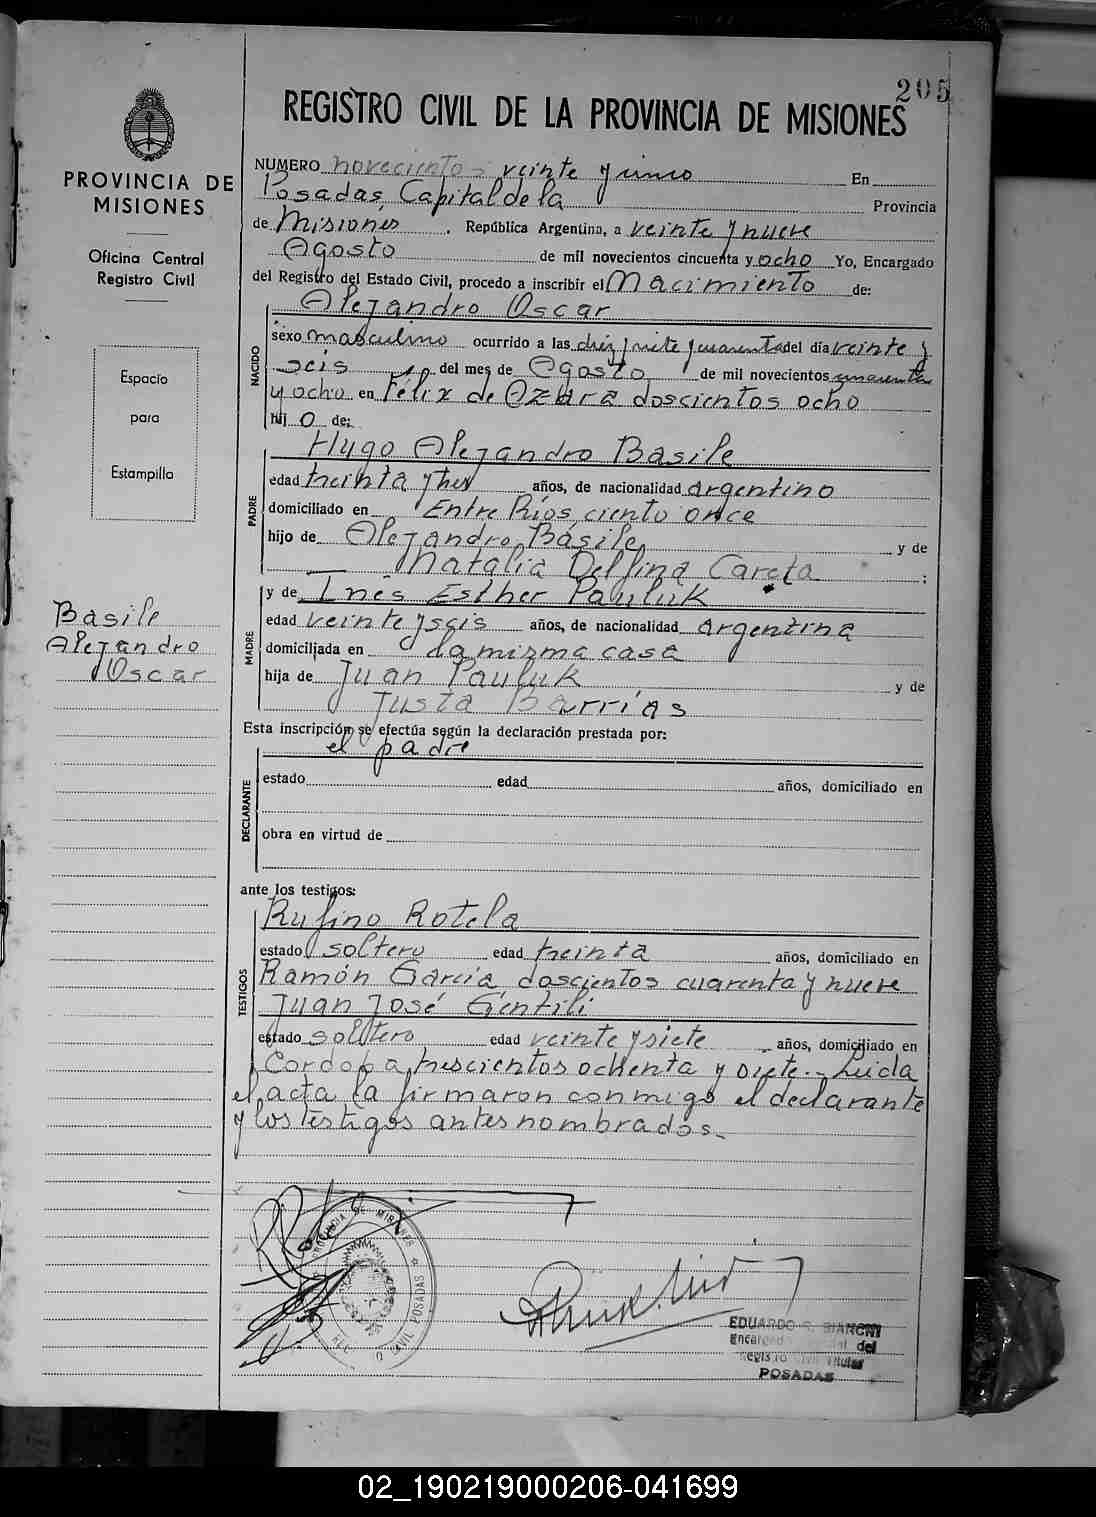 205
REGISTRO CIVIL DE LA PROVINCIA DE MISIONES
PROVINCIA DE
MISIONES
Oficina Central
Registro Civil
Espacio
para
Estampilla
Basile
Alejandro
Oscar
NUMERO novecientos veinte y cinco En
Posadas, Capital de la Provincia
de Misiones, República Argentina, a veinte y nueve
Agosto de mil novecientos cincuenta y ocho Yo, Encargado
del Registro del Estado Civil, procedo a inscribir el Nacimiento de:
NACIDO
Alejandro Oscar
sexo masculino ocurrido a las diez y siete y cuarenta del día veinte y
seis del mes de Agosto de mil novecientos cincuenta
y ocho en Félix de Azara doscientos ocho
hij o de:
PADRE
Hugo Alejandro Basile
edad treinta y tres años, de nacionalidad argentino
domiciliado en Entre Ríos ciento once
hijo de Alejandro Básile y de
Natalia Delfina Careta ;
MADRE
y de Inés Esther Pauluk
edad veinte y seis años, de nacionalidad argentina
domiciliada en la mizma casa
hija de Juan Pauluk y de
Justa Barrias
Esta inscripción se efectúa según la declaración prestada por:
DECLARANTE
el padre
estado edad años, domiciliado en
obra en virtud de
ante los testigos:
TESTIGOS
Rufino Rotela
estado soltero edad treinta años, domiciliado en
Ramón García doscientos cuarenta y nueve
Juan José Gentili
estado soltero edad veinte y siete años, domiciliado en
Cordoba trescientos ochenta y siete.- Leida
el acta la firmaron conmigo el declarante
y los testigos antes nombrados.
PROVINCIA DE MISIONES
REG CIVIL POSADAS
EDUARDO BIANCHI
Encargado del
Registro Civil Titular
POSADAS
02_190219000206-041699